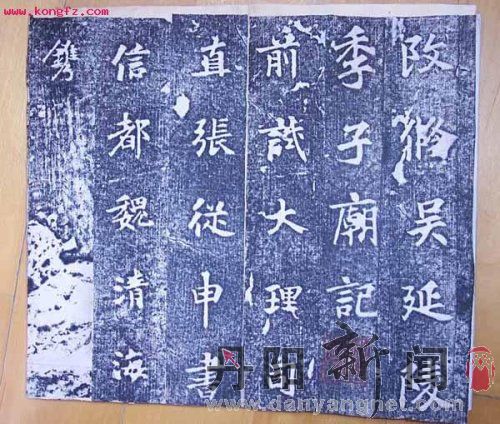 www.kongfz.com
改脩吴延陵
季子廟記
前試大理司
直張從申書
信都魏清海
鐫
丹阳新闻
www.danyangnet.com